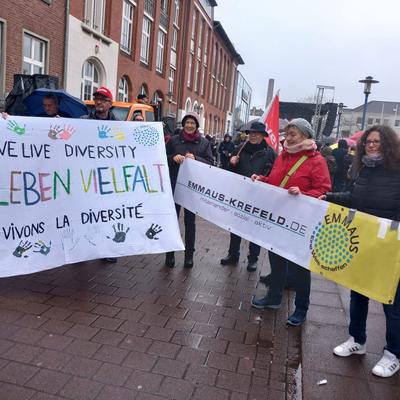 WE LIVE DIVERSITY
LEBEN VIELFALT
VIVONS LA DIVERSITÉ
EMMAUS-KREFELD.DE
miteinander sozial aktiv
EMMAUS